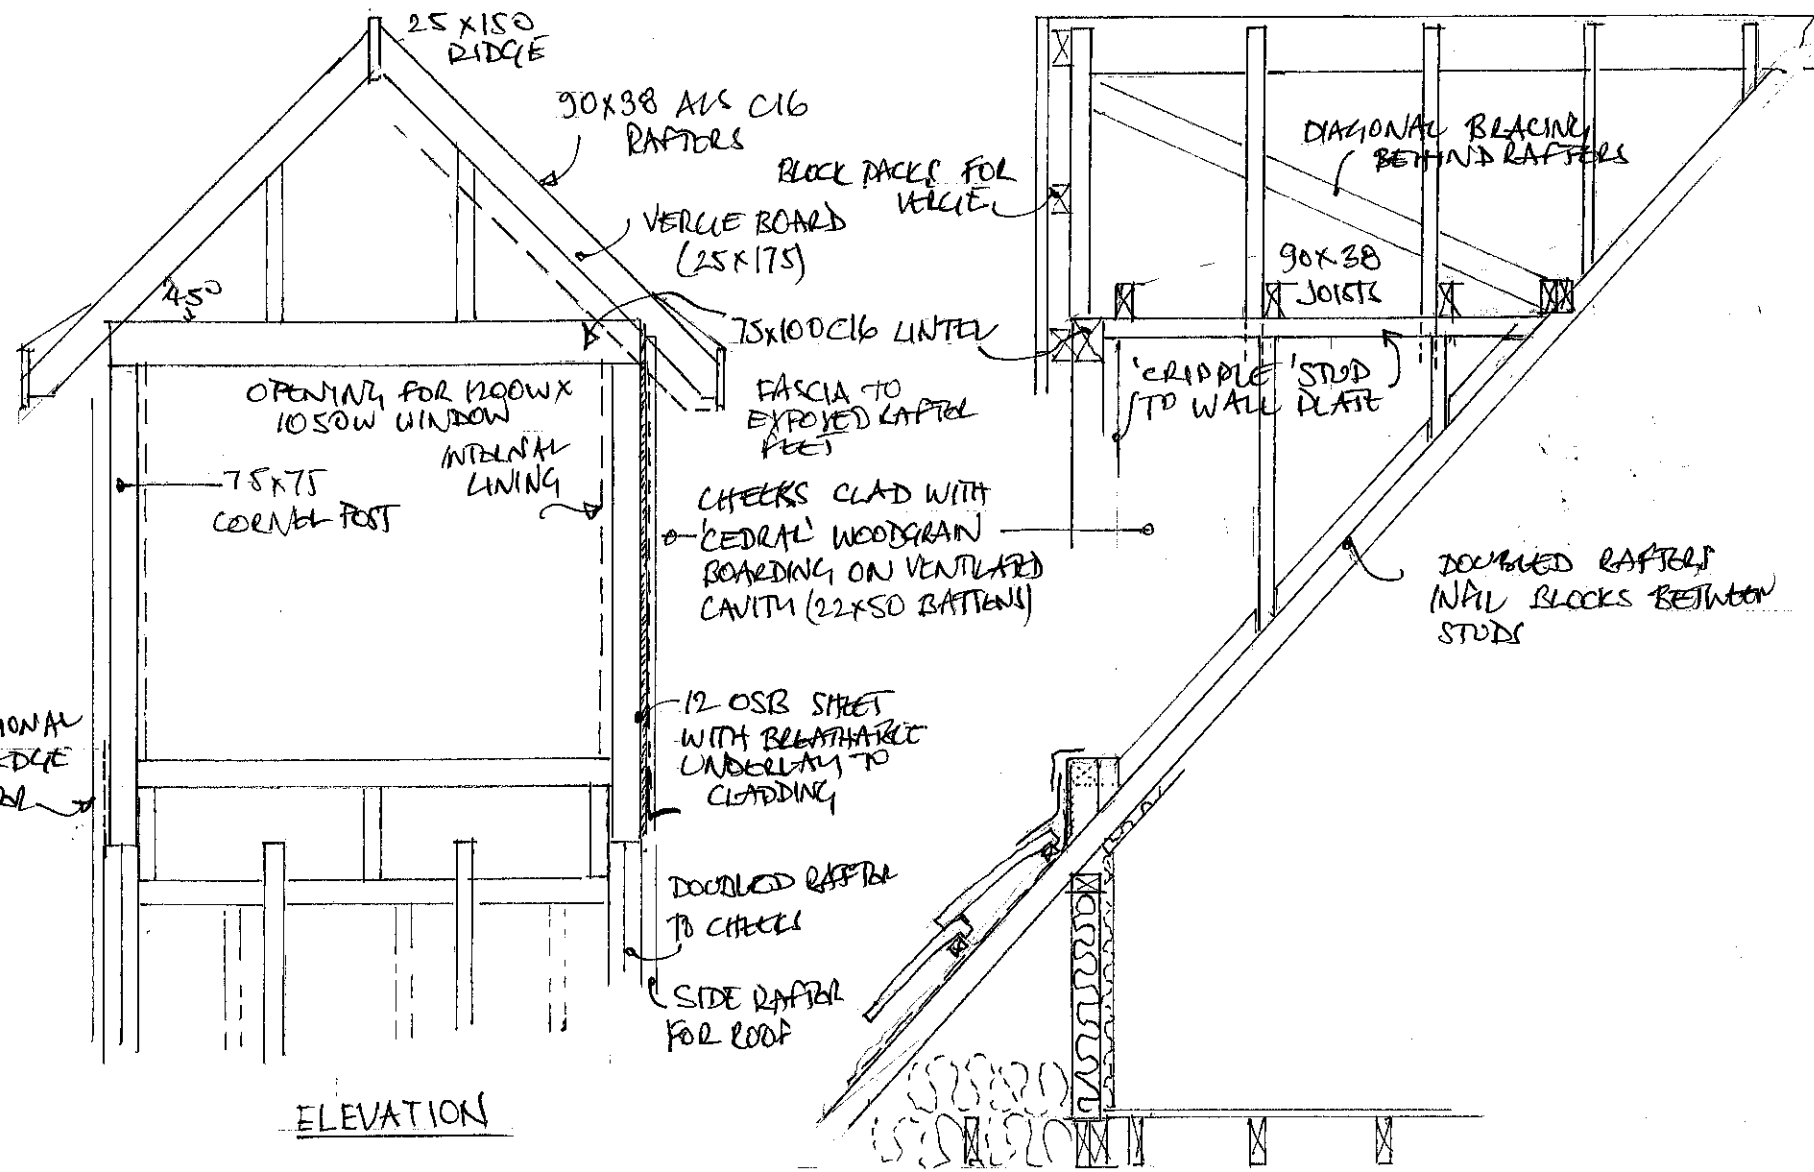 25X150
RIDGE
90X38 ALS C16
RAFTERS
VERGE BOARD
(25X175)
45°
75X100 C16 LINTEL
OPENING FOR 1200W X
1050W WINDOW
INTERNAL
LINING
75X75
CORNER POST
FASCIA TO
EXPOSED RAFTER
FEET
CHEEKS CLAD WITH
'CEDRAL' WOODGRAIN
BOARDING ON VENTILATED
CAVITY (22X50 BATTENS)
12 OSB SHEET
WITH BREATHABLE
UNDERLAY TO
CLADDING
IONAL
EDGE
DOUBLED RAFTER
TO CHEEKS
SIDE RAFTER
FOR ROOF
ELEVATION
BLOCK PACKS FOR
VERGE
DIAGONAL BRACING
BEHIND RAFTERS
90X38
JOISTS
'CRIPPLE' STUD
TO WALL PLATE
DOUBLED RAFTERS
INFIL BLOCKS BETWEEN
STUDS